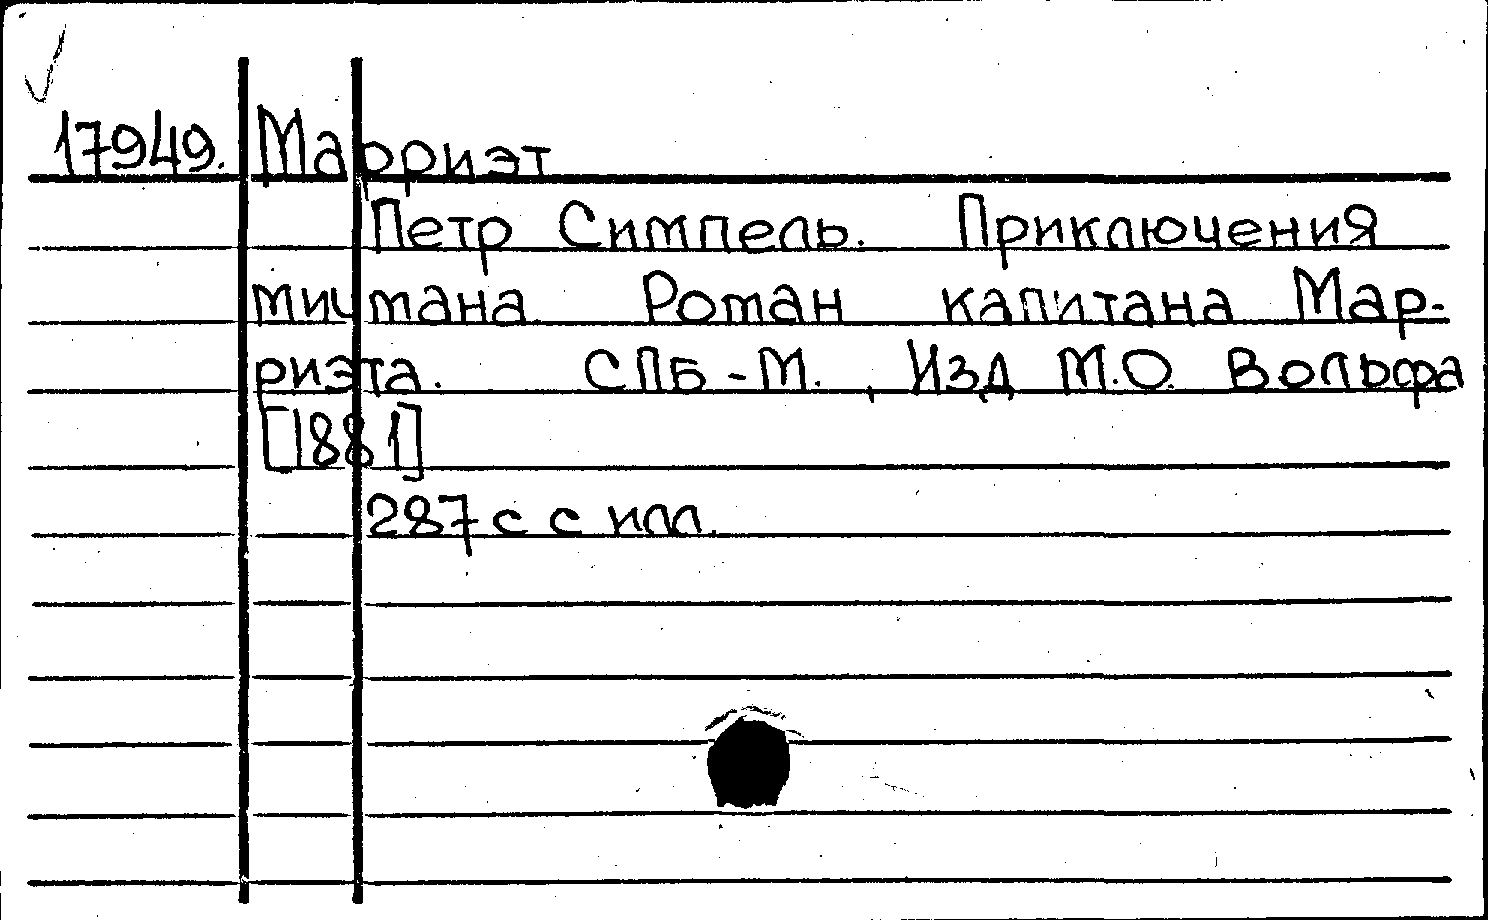 17949. Марриэт
Петр Симпель. Приключения
мичмана. Роман капитана Мар-
риэта. СПБ-М., Изд М.О. Вольфа
[1881]
287 с с илл.